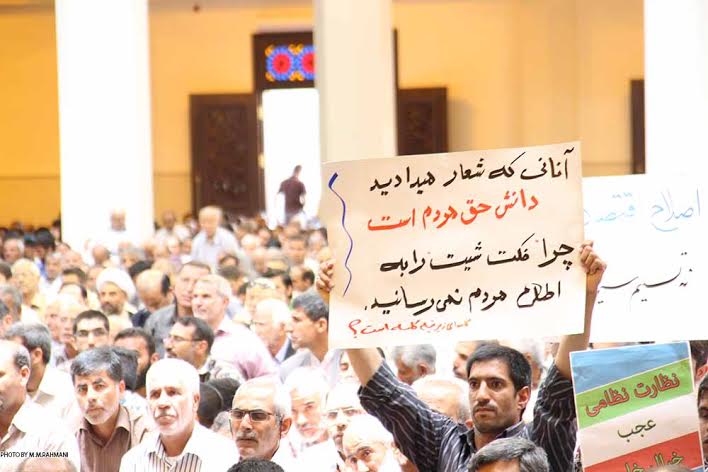 آنانی که شعار میدادید
دانش حق مردم است
چرا فکت شیت را به
اطلاع مردم نمی رسانید.
کاسه ای زیر نیم کاسه است؟
اصلاح
نه تسیلم
نظارت نظامی
عجب
خیال
PHOTO BY M.M.RAHMANI